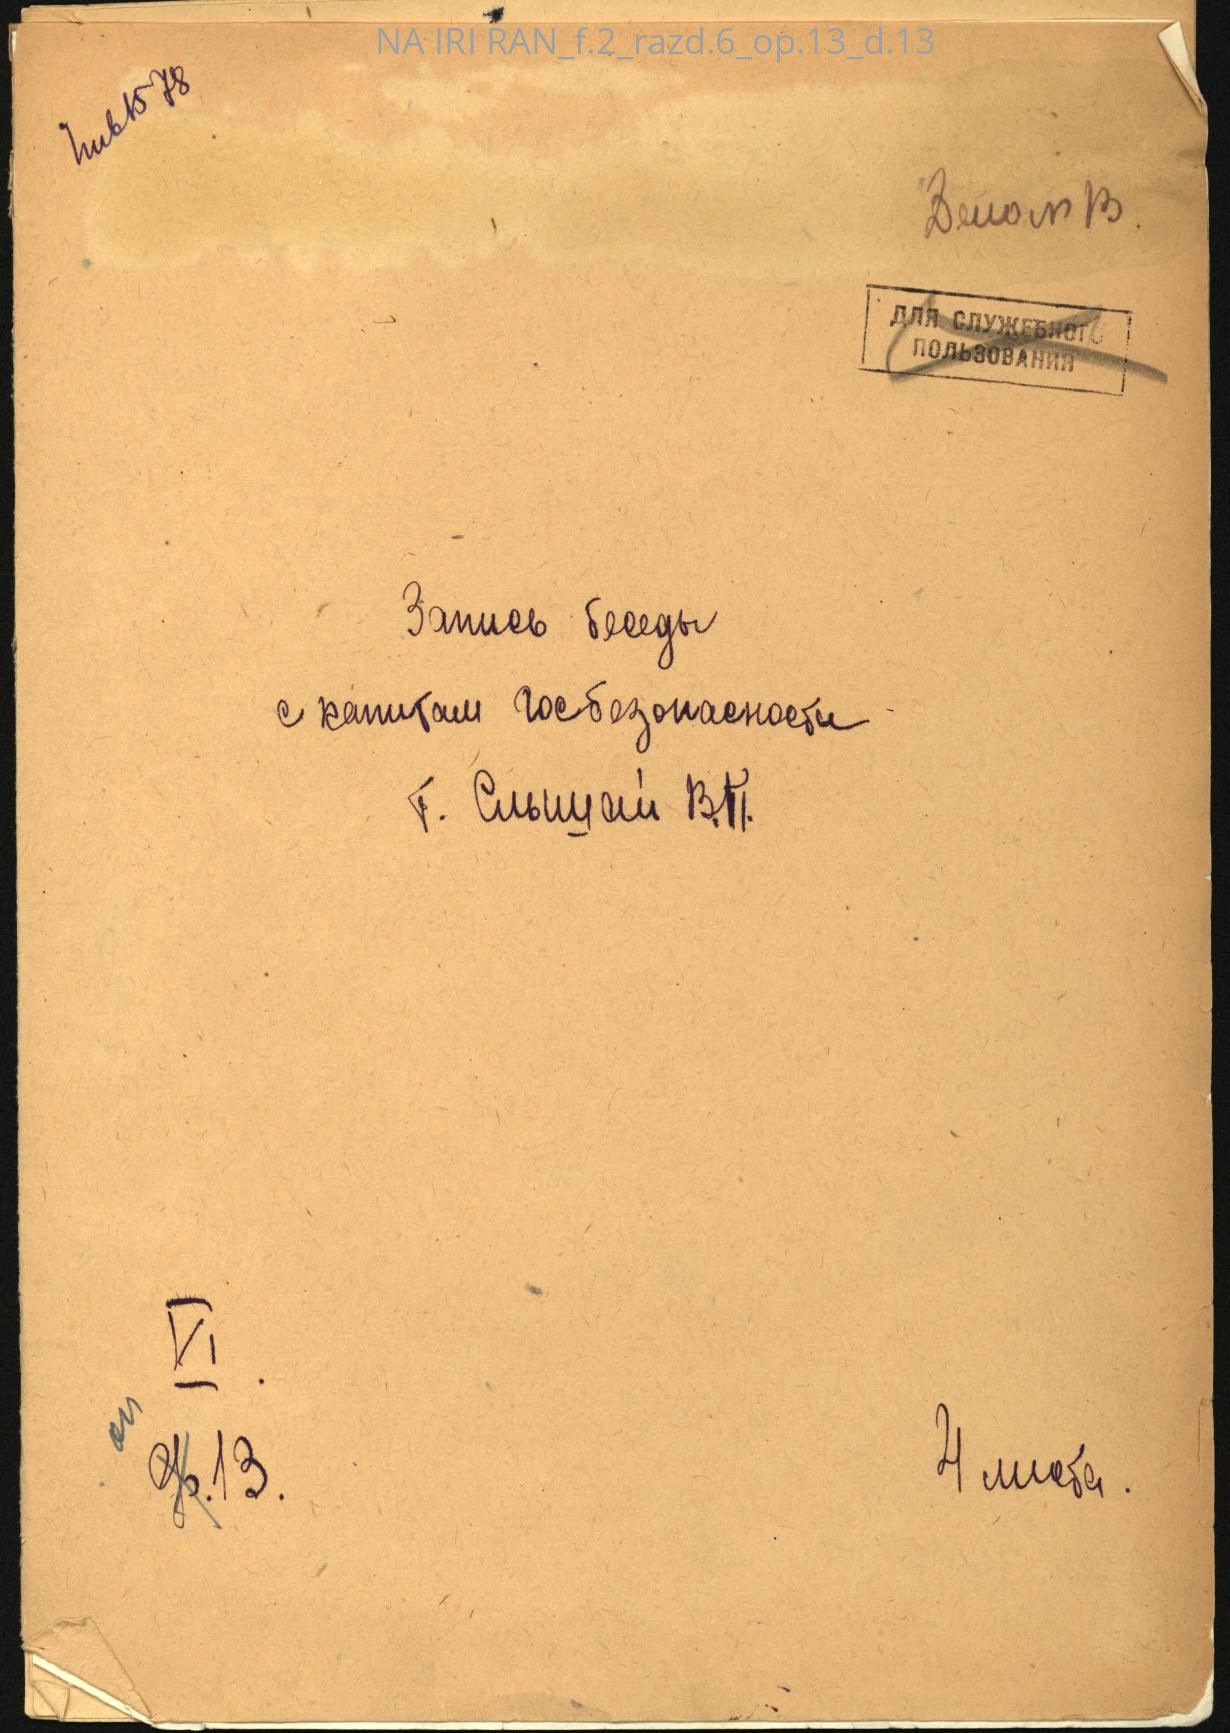 NA IRI RAN_f.2_razd.6_op.13_d.13
Инв № 78
Дело № 13.
ДЛЯ СЛУЖЕБНОГО
ПОЛЬЗОВАНИЯ
Запись беседы
с капитам госбезопасности
т. Слыщай В.П.
VI.
оп
ф.13.
4 листа.